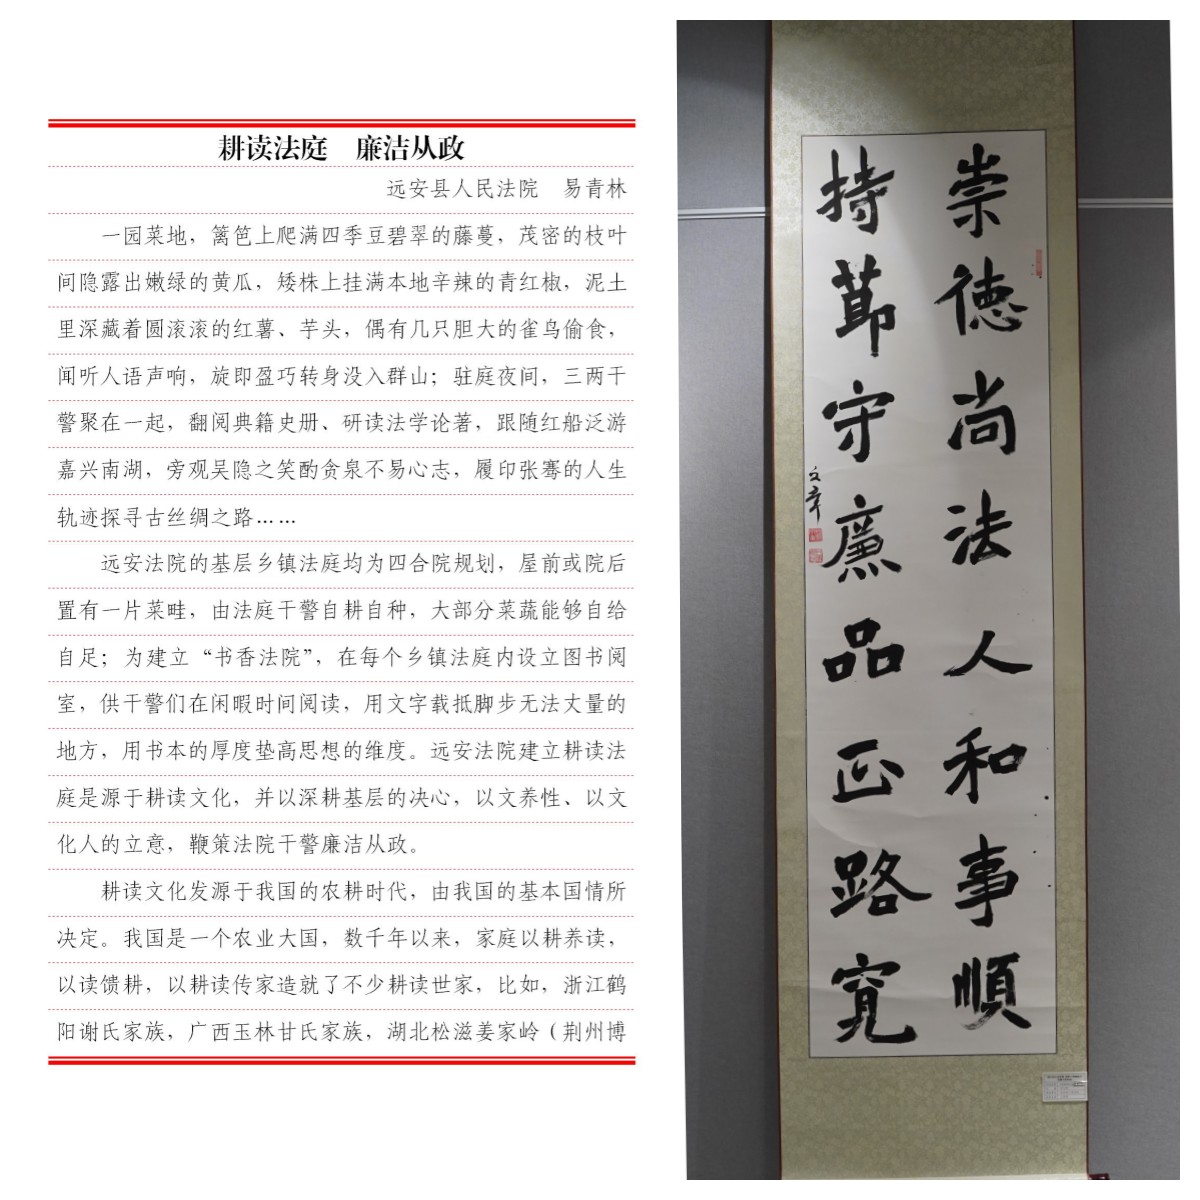 耕读法庭　廉洁从政
远安县人民法院　易青林
一园菜地，篱笆上爬满四季豆碧翠的藤蔓，茂密的枝叶
间隐露出嫩绿的黄瓜，矮株上挂满本地辛辣的青红椒，泥土
里深藏着圆滚滚的红薯、芋头，偶有几只胆大的雀鸟偷食，
闻听人语声响，旋即盈巧转身没入群山；驻庭夜间，三两干
警聚在一起，翻阅典籍史册、研读法学论著，跟随红船泛游
嘉兴南湖，旁观吴隐之笑酌贪泉不易心志，履印张骞的人生
轨迹探寻古丝绸之路……
远安法院的基层乡镇法庭均为四合院规划，屋前或院后
置有一片菜畦，由法庭干警自耕自种，大部分菜蔬能够自给
自足；为建立“书香法院”，在每个乡镇法庭内设立图书阅
室，供干警们在闲暇时间阅读，用文字载抵脚步无法丈量的
地方，用书本的厚度垫高思想的维度。远安法院建立耕读法
庭是源于耕读文化，并以深耕基层的决心，以文养性、以文
化人的立意，鞭策法院干警廉洁从政。
耕读文化发源于我国的农耕时代，由我国的基本国情所
决定。我国是一个农业大国，数千年以来，家庭以耕养读，
以读馈耕，以耕读传家造就了不少耕读世家，比如，浙江鹤
阳谢氏家族，广西玉林甘氏家族，湖北松滋姜家岭（荆州博
崇德尚法人和事順
持莭守廉品正路寬
文章